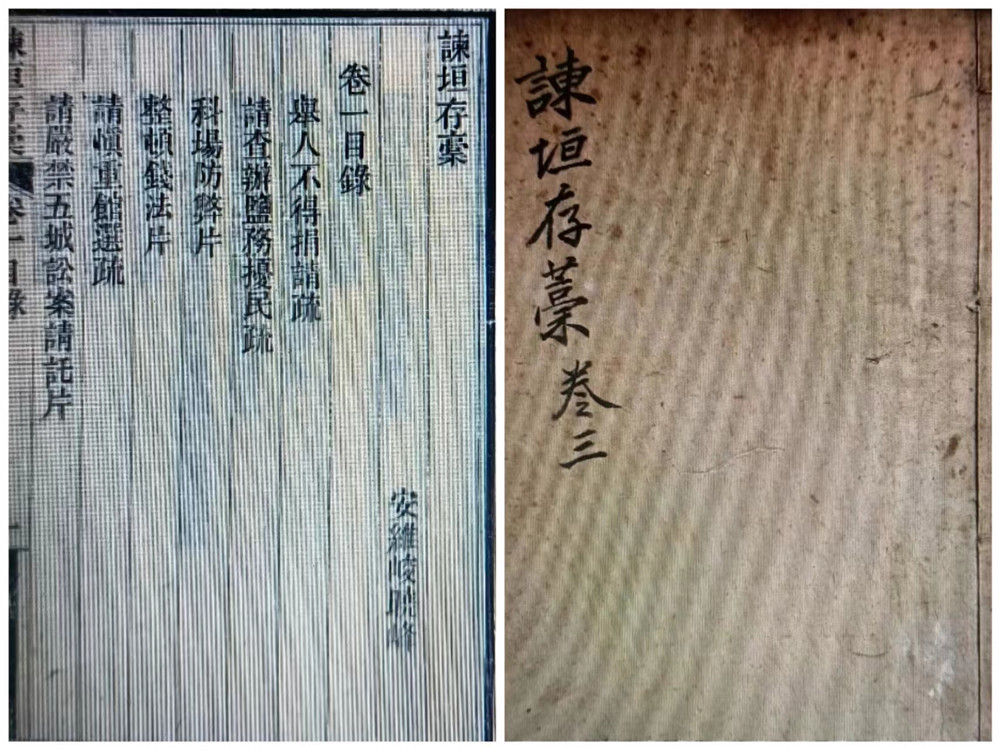 諫垣存稾
安維峻曉峰
卷一目錄
舉人不得捐請疏
請查辦鹽務擾民疏
科場防弊片
整頓錢法片
請慎重館選疏
請嚴禁五城訟案請託片
諫垣存稾 卷一 目錄 一
諫垣存藁 卷三